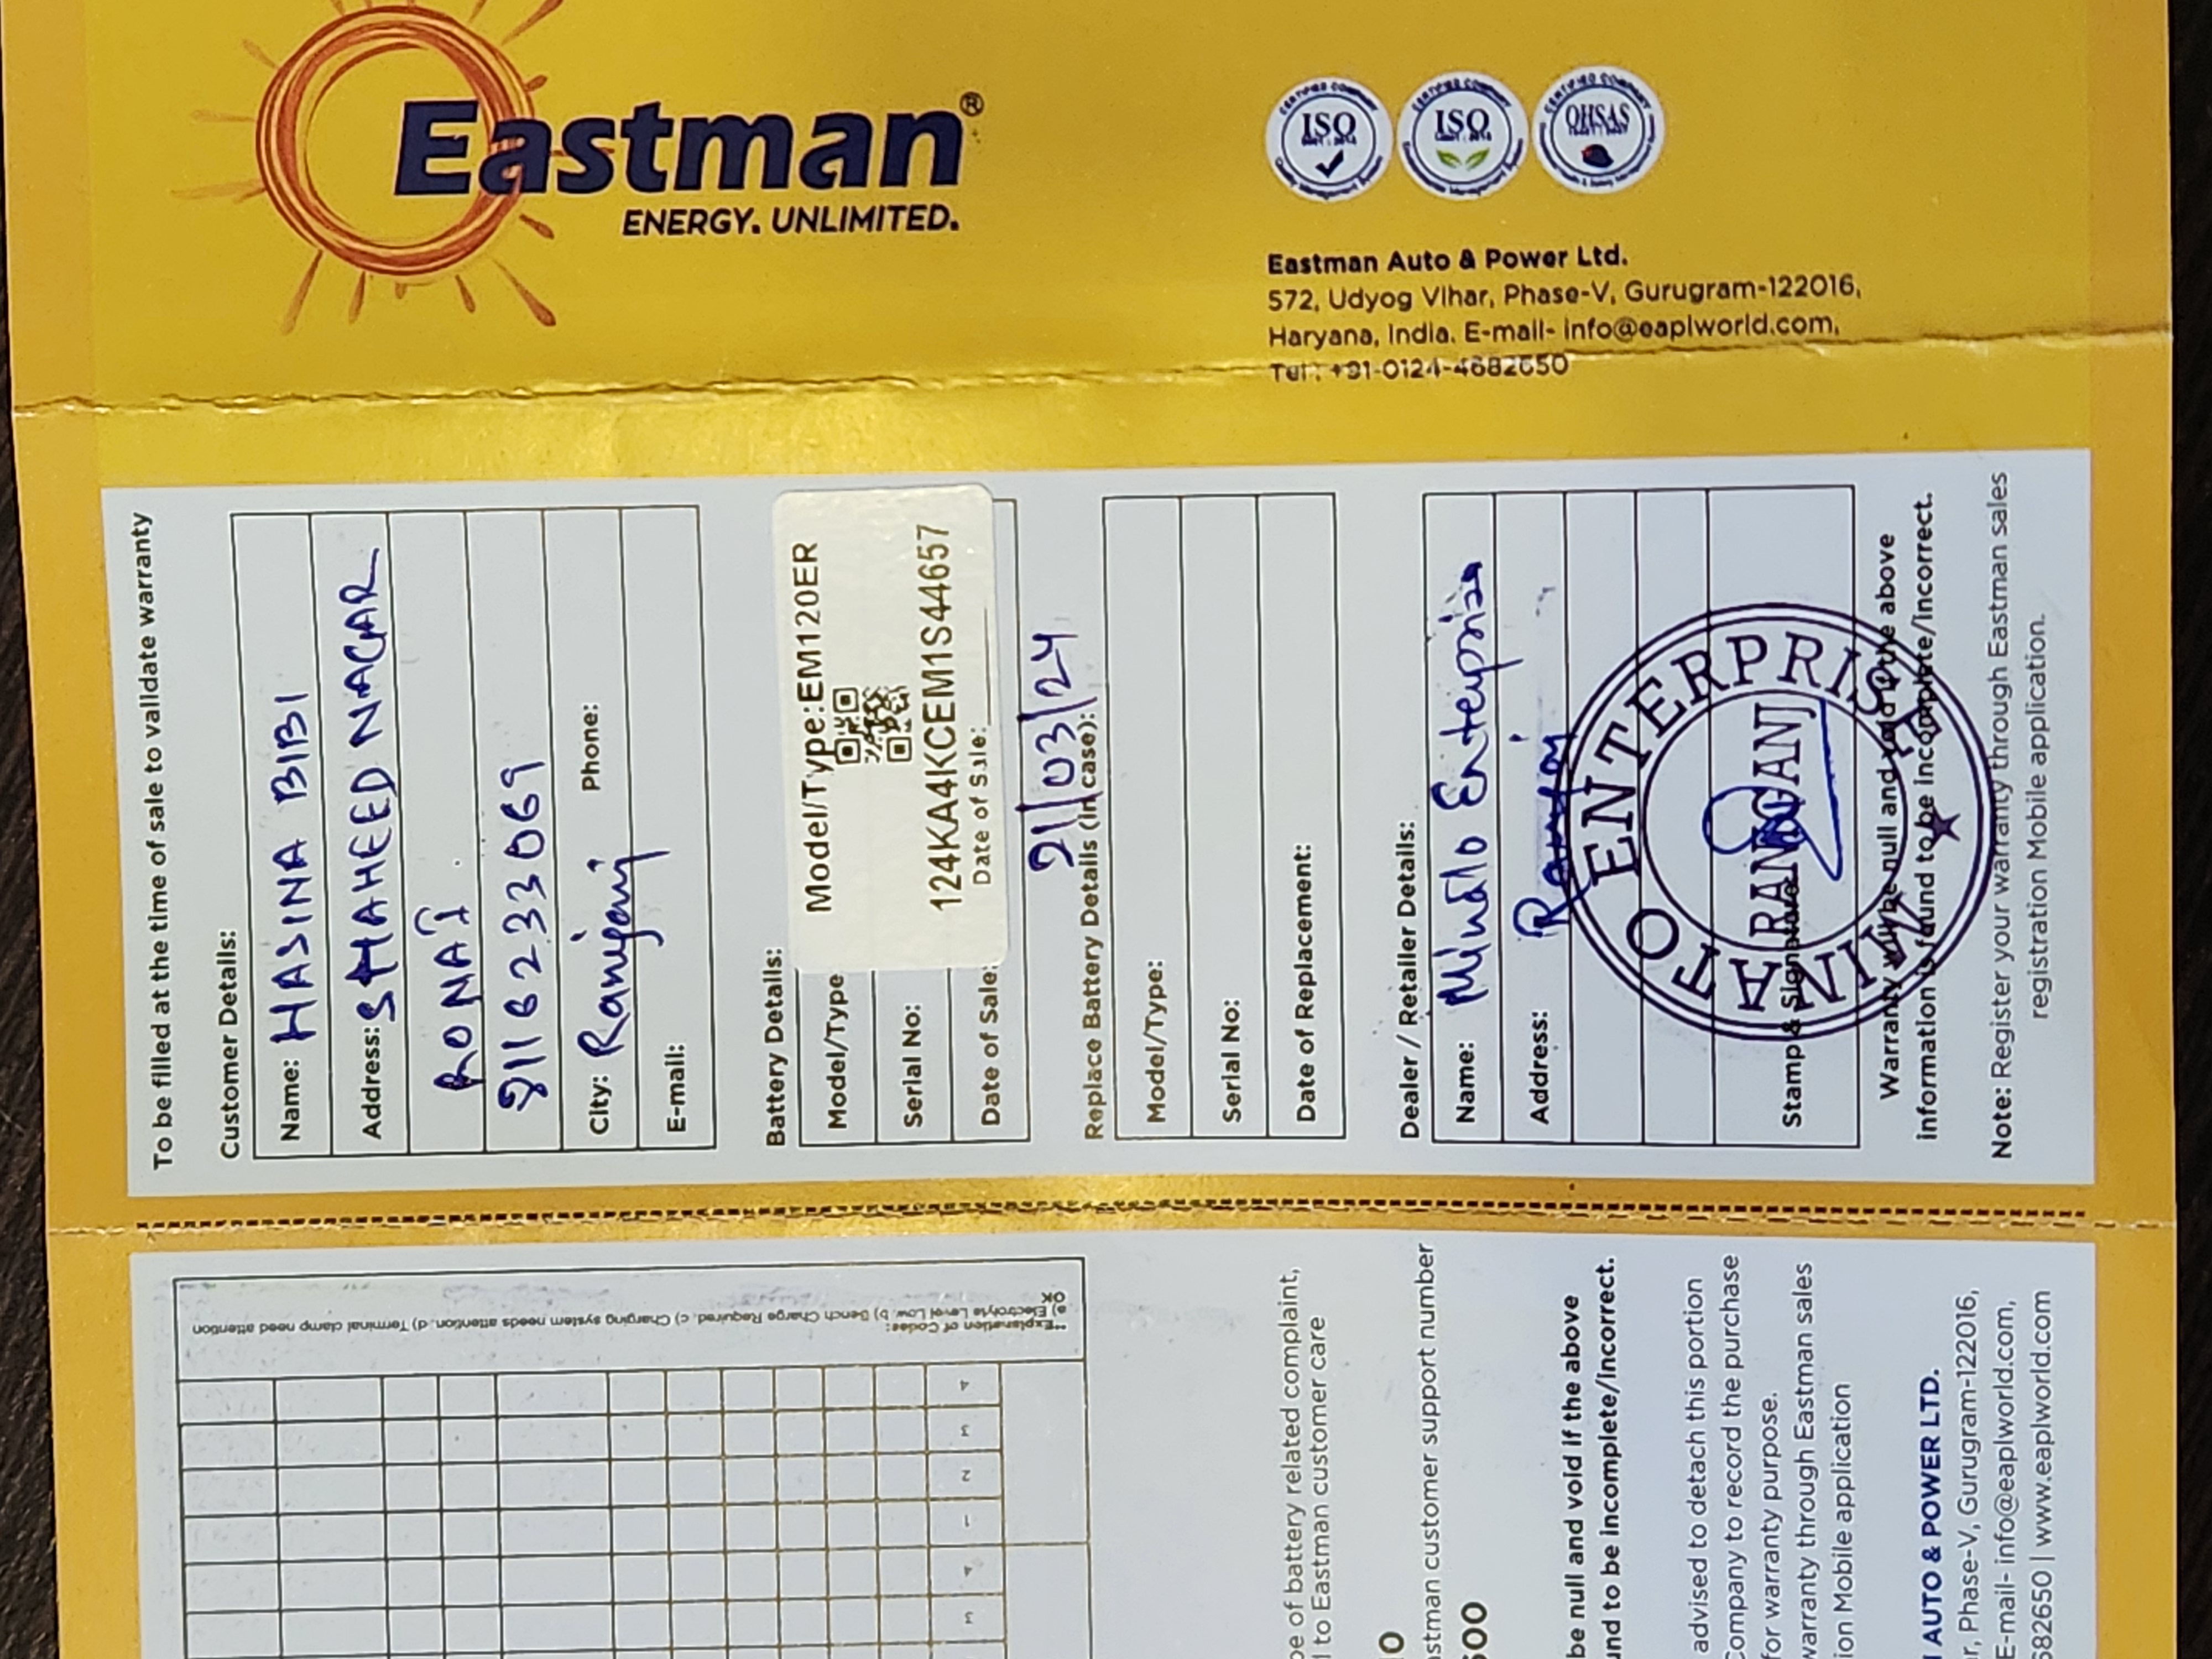 **Explanation of Codes:
a) Electrolyte Level Low. b) Bench Charge Required. c) Charging system needs attention. d) Terminal clamp need attention
OK
3
4
1
2
3
4
pe of battery related complaint,
to Eastman customer care
astman customer support number
be null and void if the above
und to be incomplete/incorrect.
advised to detach this portion
Company to record the purchase
for warranty purpose.
warranty through Eastman sales
ion Mobile application
AUTO & POWER LTD.
r, Phase-V, Gurugram-122016,
E-mail- info@eaplworld.com,
682650 | www.eaplworld.com
To be filled at the time of sale to validate warranty
Customer Details:
Name: HASINA BIBI
Address: SHAHEED NAGAR
RONAI
8116233069
City: Raniganj Phone:
E-mail:
Battery Details:
Model/Type
Serial No:
Date of Sale:
Model/Type:EM120ER
124KA4KCEM1S44657
Date of Sale:
21/03/24
Replace Battery Details (in case):
Model/Type:
Serial No:
Date of Replacement:
Dealer / Retailer Details:
Name: Minato Enterprise
Address: Raniganj
Stamp & Signature:
MINATO ENTERPRISE
RANIGANJ
Warranty will be null and void if the above
information is found to be incomplete/incorrect.
Note: Register your warranty through Eastman sales
registration Mobile application.
Eastman®
ENERGY. UNLIMITED.
ISO
ISO
OHSAS
Eastman Auto & Power Ltd.
572, Udyog Vihar, Phase-V, Gurugram-122016,
Haryana, India. E-mail- info@eaplworld.com,
Tel.: +91-0124-4682650